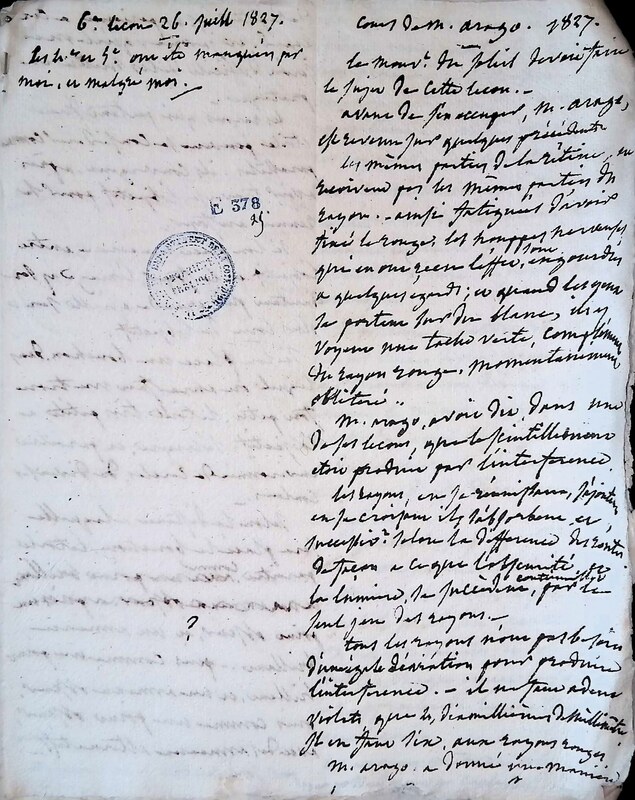 6.e leçon 26. juill 1827.
Les 4.e et 5.e ont été manquées par
moi, et malgré moi.
E 378
DÉPARTEMENT DE LA
?
Cours de M. arago. 1827.
le mouv.t du soleil devoit faire
le sujet de cette leçon. —
avant de s'en occuper, M. arago,
est revenu sur quelques précédents
les mêmes parties de la rétine, ne
reçoivent pas les mêmes parties du
rayon. — ainsi fatigués d'avoir
fixé le rouge, les houppes nerveuses
qui en ont reçu l'effet, sont engourdies
a quelques égards; et quand les yeux
se portent sur du blanc, ils y
voyent une tache verte, complément
du rayon rouge, momentanément
oblitéré..
M. arago, avoit dit, dans une
de ses leçons, que la scintillation
etoit produite par l'interférence
les rayons, en se réunissant, s'ajoutent
en se croisant ils s'absorbent et
success.t selon la différence des routes
de façon a ce que l'obscurité et
la lumière, se succèdent continuellt par le
seul jeu des rayons. —
tous les rayons n'ont pas besoin
d'une égale déviation pour produire
l'interférence. — il ne faut a deux
violets que 4, dix millièmes de millimètre
il en faut six, aux rayons rouges
M. arago a donné une manière